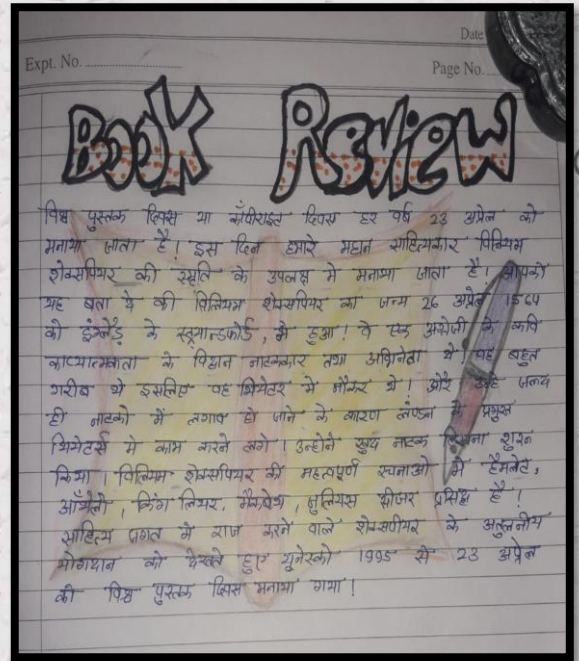 Date
Expt. No.
Page No.
Book Review
विश्व पुस्तक दिवस या कॉपीराइट दिवस हर वर्ष 23 अप्रेल को
मनाया जाता है। इस दिन हमारे महान साहित्यकार विलियम
शेक्सपियर की स्मृति के उपलक्ष मे मनाया जाता है। आपको
यह बता दे की विलियम शेक्सपियर का जन्म 26 अप्रेल 1564
को इंग्लैंड के में हुआ। वे एक अंग्रेजी के कवि
काव्यात्मकता के विद्वान नाटककार तथा अभिनेता थे। वह बहुत
गरीब थे इसलिए वह थियेटर मे नौकर थे। और उन्हे जल्द
ही नाटको में लगाव हो जाने के कारण लंण्डन के प्रमुख
थियेटर्स मे काम करने लगे। उन्होने खुद नाटक लिखना शुरू
किया। विलियम शेक्सपियर की महत्वपूर्ण रचनाओ मे हैमलेट,
ऑथेलो, किंग लियर, मैकबेथ, जुलियस सीजर प्रसिद्ध है।
साहित्य जगत मे राज करने वाले शेक्सपीयर के अतुलनीय
योगदान को देखते हुए यूनेस्को 1995 से 23 अप्रेल
की विश्व पुस्तक दिवस मनाया गया।